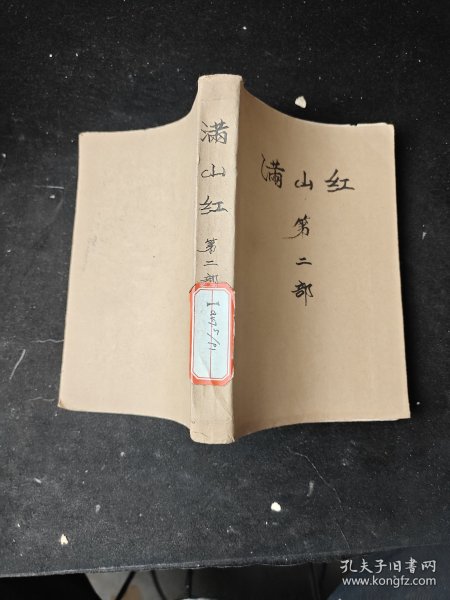 满山红
第二部
满山红
第二部
孔夫子旧书网
www.kongfz.com